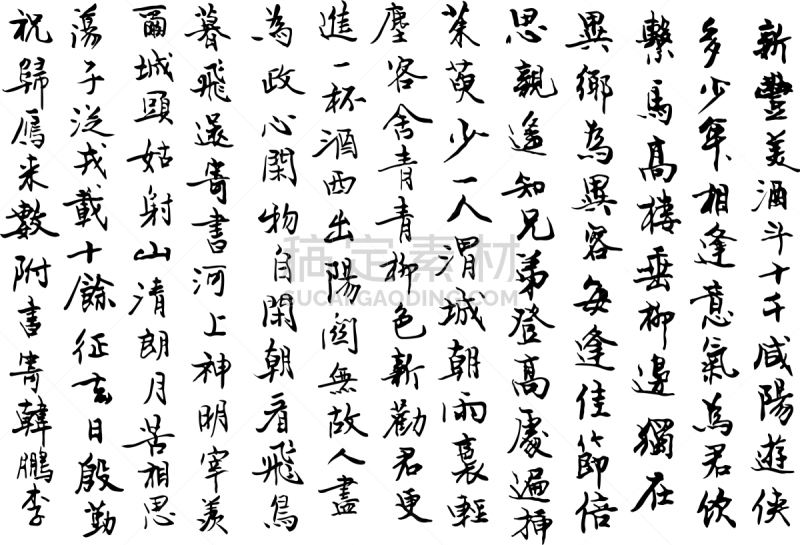 新豐美酒斗十千咸陽遊俠
多少年相逢意氣為君飲
繫馬高樓垂柳邊獨在
異鄉為異客每逢佳節倍
思親遙知兄弟登高處遍插
茱萸少一人渭城朝雨裛輕
塵客舍青青柳色新勸君更
進一杯酒西出陽關無故人盡
為政心閑物自閑朝看飛鳥
暮飛還寄書河上神明宰羨
爾城頭姑射山清朗月苦相思
蕩子從戎載十餘征去日殷勤
祝歸雁來數附書寄韓鵬李
搞定素材
SUCAI.GAODING.COM